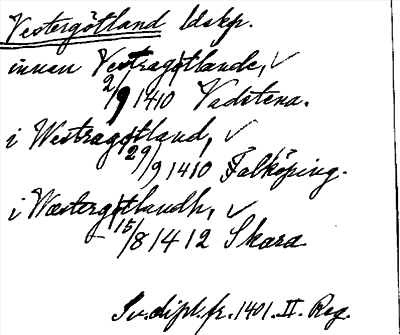 Vestergötland ldskp.
innan Vestragøtlande, ✓
2/9 1410 Vadstena.
i Westragøtland, ✓
29/9 1410 Falköping.
i Wæstergøtlandh, ✓
15/8 1412 Skara
Sv. dipl. fr. 1401. II. Reg.